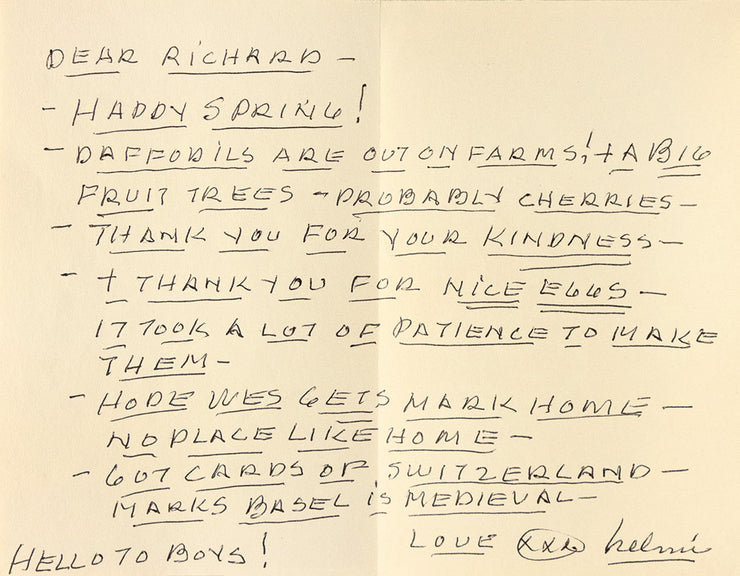 DEAR RICHARD –
– HAPPY SPRING!
– DAFFODILS ARE OUT ON FARMS! + A BIG
FRUIT TREES – PROBABLY CHERRIES –
– THANK YOU FOR YOUR KINDNESS –
– + THANK YOU FOR NICE EGGS –
IT TOOK A LOT OF PATIENCE TO MAKE
THEM –
– HOPE WES GETS MARK HOME –
NO PLACE LIKE HOME –
– GOT CARDS OF SWITZERLAND –
MARKS BASEL IS MEDIEVAL –
LOVE xxx helmi
HELLO TO BOYS!